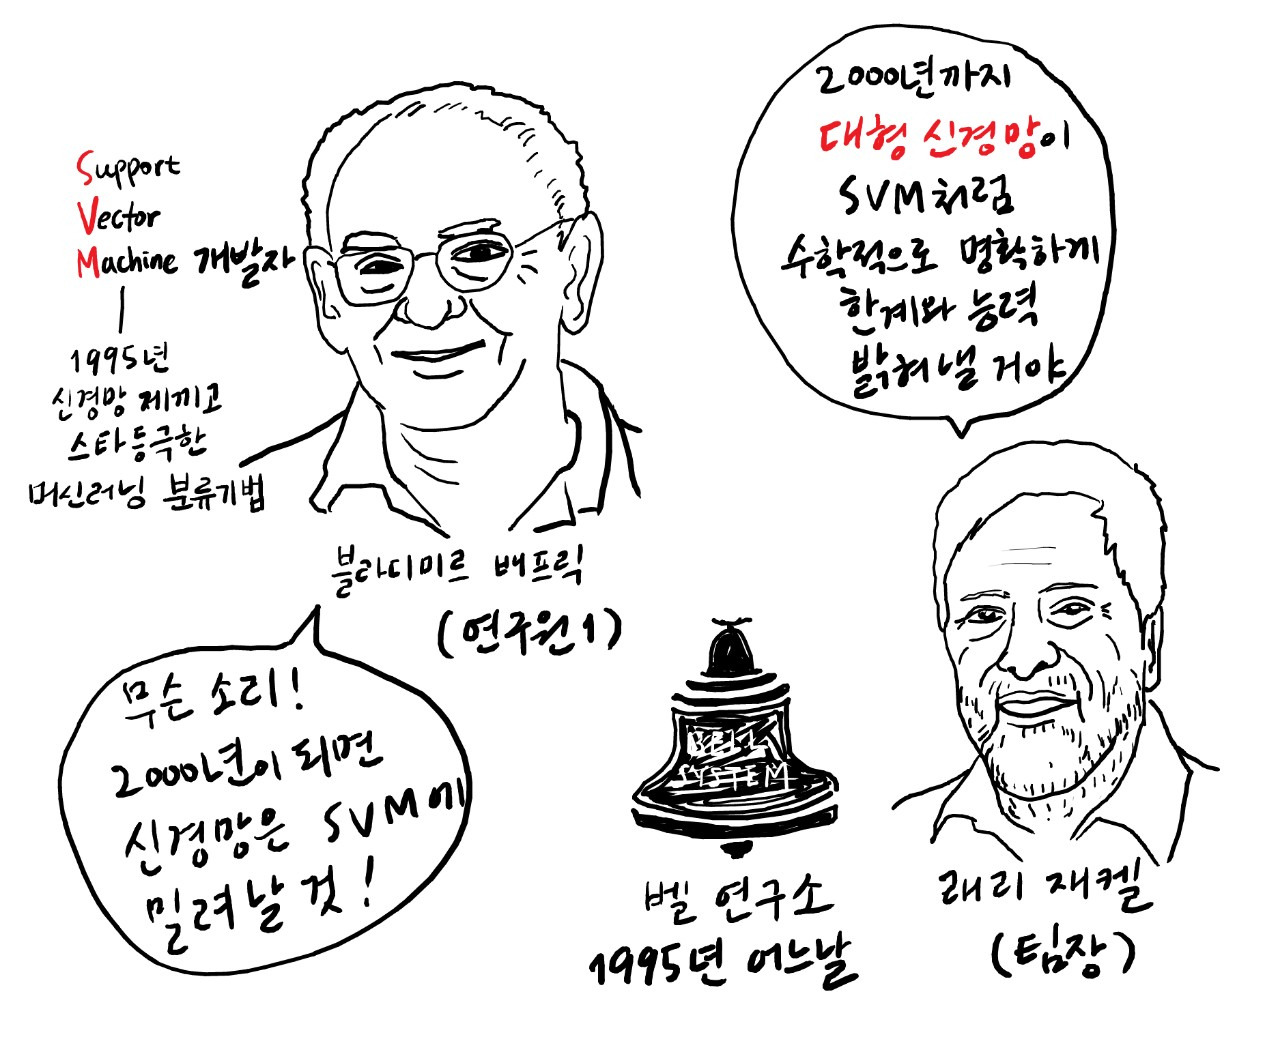 Support
Vector
Machine 개발자
1995년
신경망 제끼고
스타등극한
머신러닝 분류기법
블라디미르 배프릭
(연구원1)
무슨 소리!
2000년이 되면
신경망은 SVM에
밀려날 것!
2000년까지
대형 신경망이
SVM처럼
수학적으로 명확하게
한계와 능력
밝혀낼 거야
BELL
SYSTEM
벨 연구소
1995년 어느날
래리 재켈
(팀장)